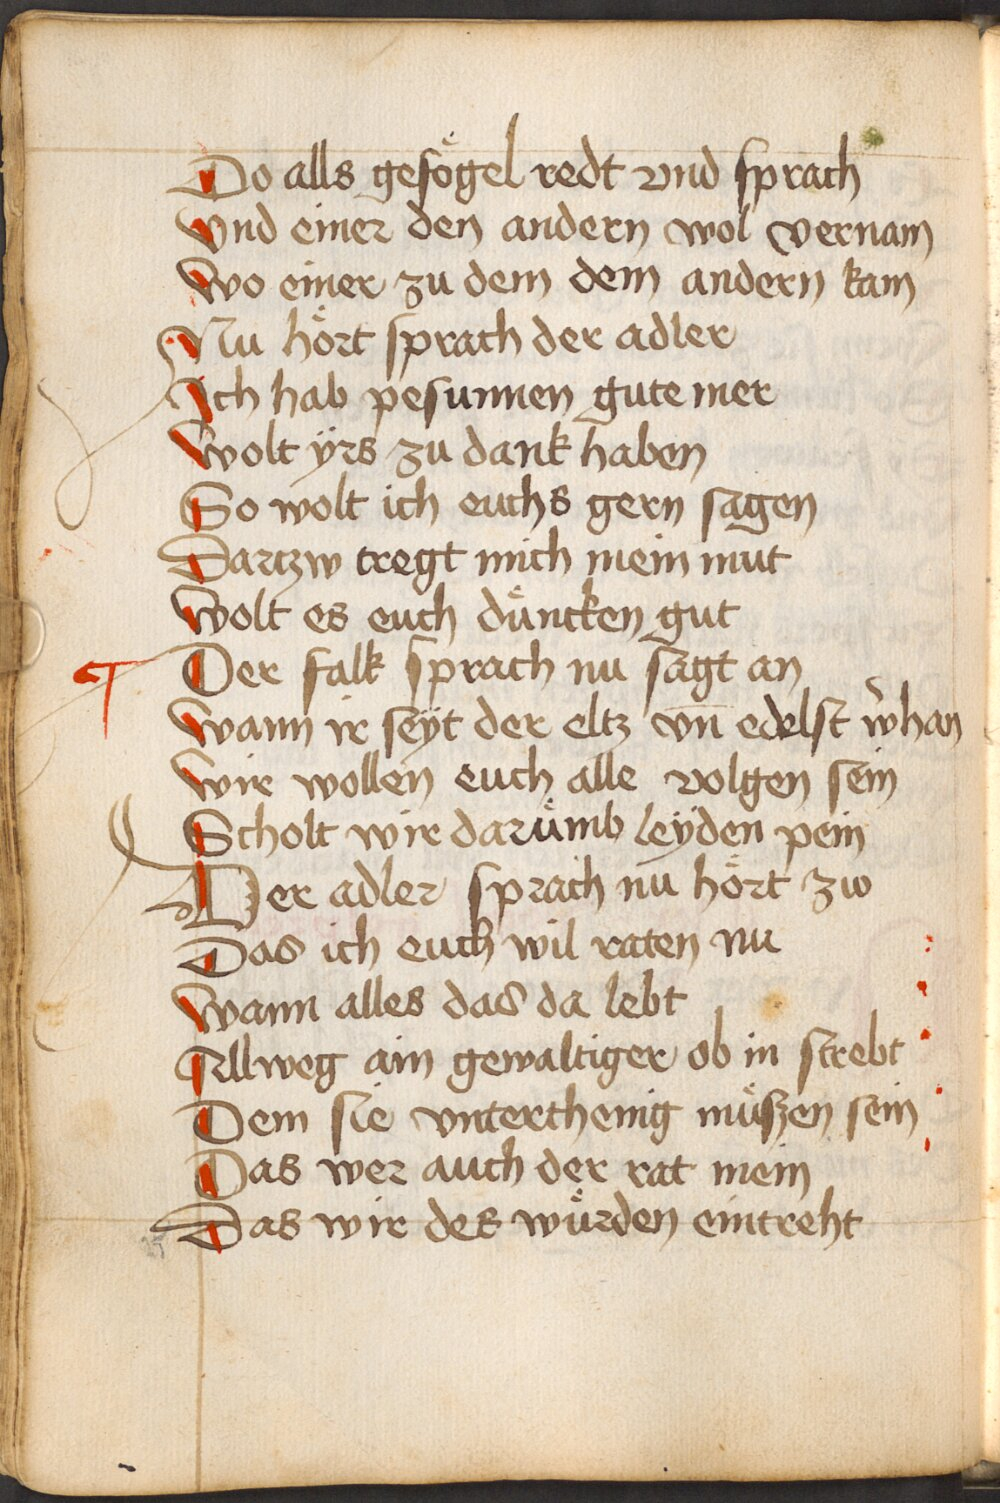 Do alls gefögel redt vnd sprach
Vnd einer den andern wol vernam
Wo einer zu dem dem andern kam
Nu hört sprach der adler
Ich hab pesunnen gute mer
Wolt ÿrs zu dank haben
So wolt ich euchs gern sagen
Dartzw tregt mich mein mut
Wolt es euch düncken gut
Der falk sprach nu sagt an
Wann ir seÿt der eltz vn̄ edelst
Wir wollen euch alle volgen sein
Scholt wir darümb leÿden pein
Der adler sprach nu hört zw
Das ich euch wil raten nu
Wann alles das da lebt
Allweg ain gewaltiger ob in strebt
Dem sie vnterthenig müszen sein
Das wer auch der rat mein
Das wir des würden eintreht